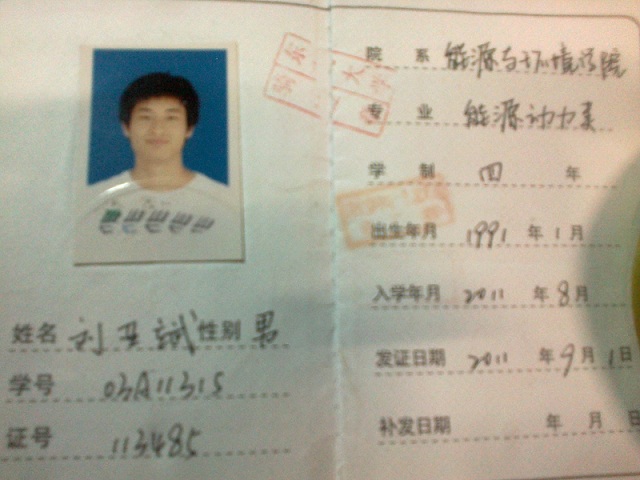 姓名 刘亚斌 性别 男
学号 03A11315
证号 113485
院系 能源与环境学院
专业 能源动力类
学制 四 年
出生年月 1991 年 1 月
入学年月 2011 年 8 月
发证日期 2011 年 9 月 1 日
补发日期 年 月 日